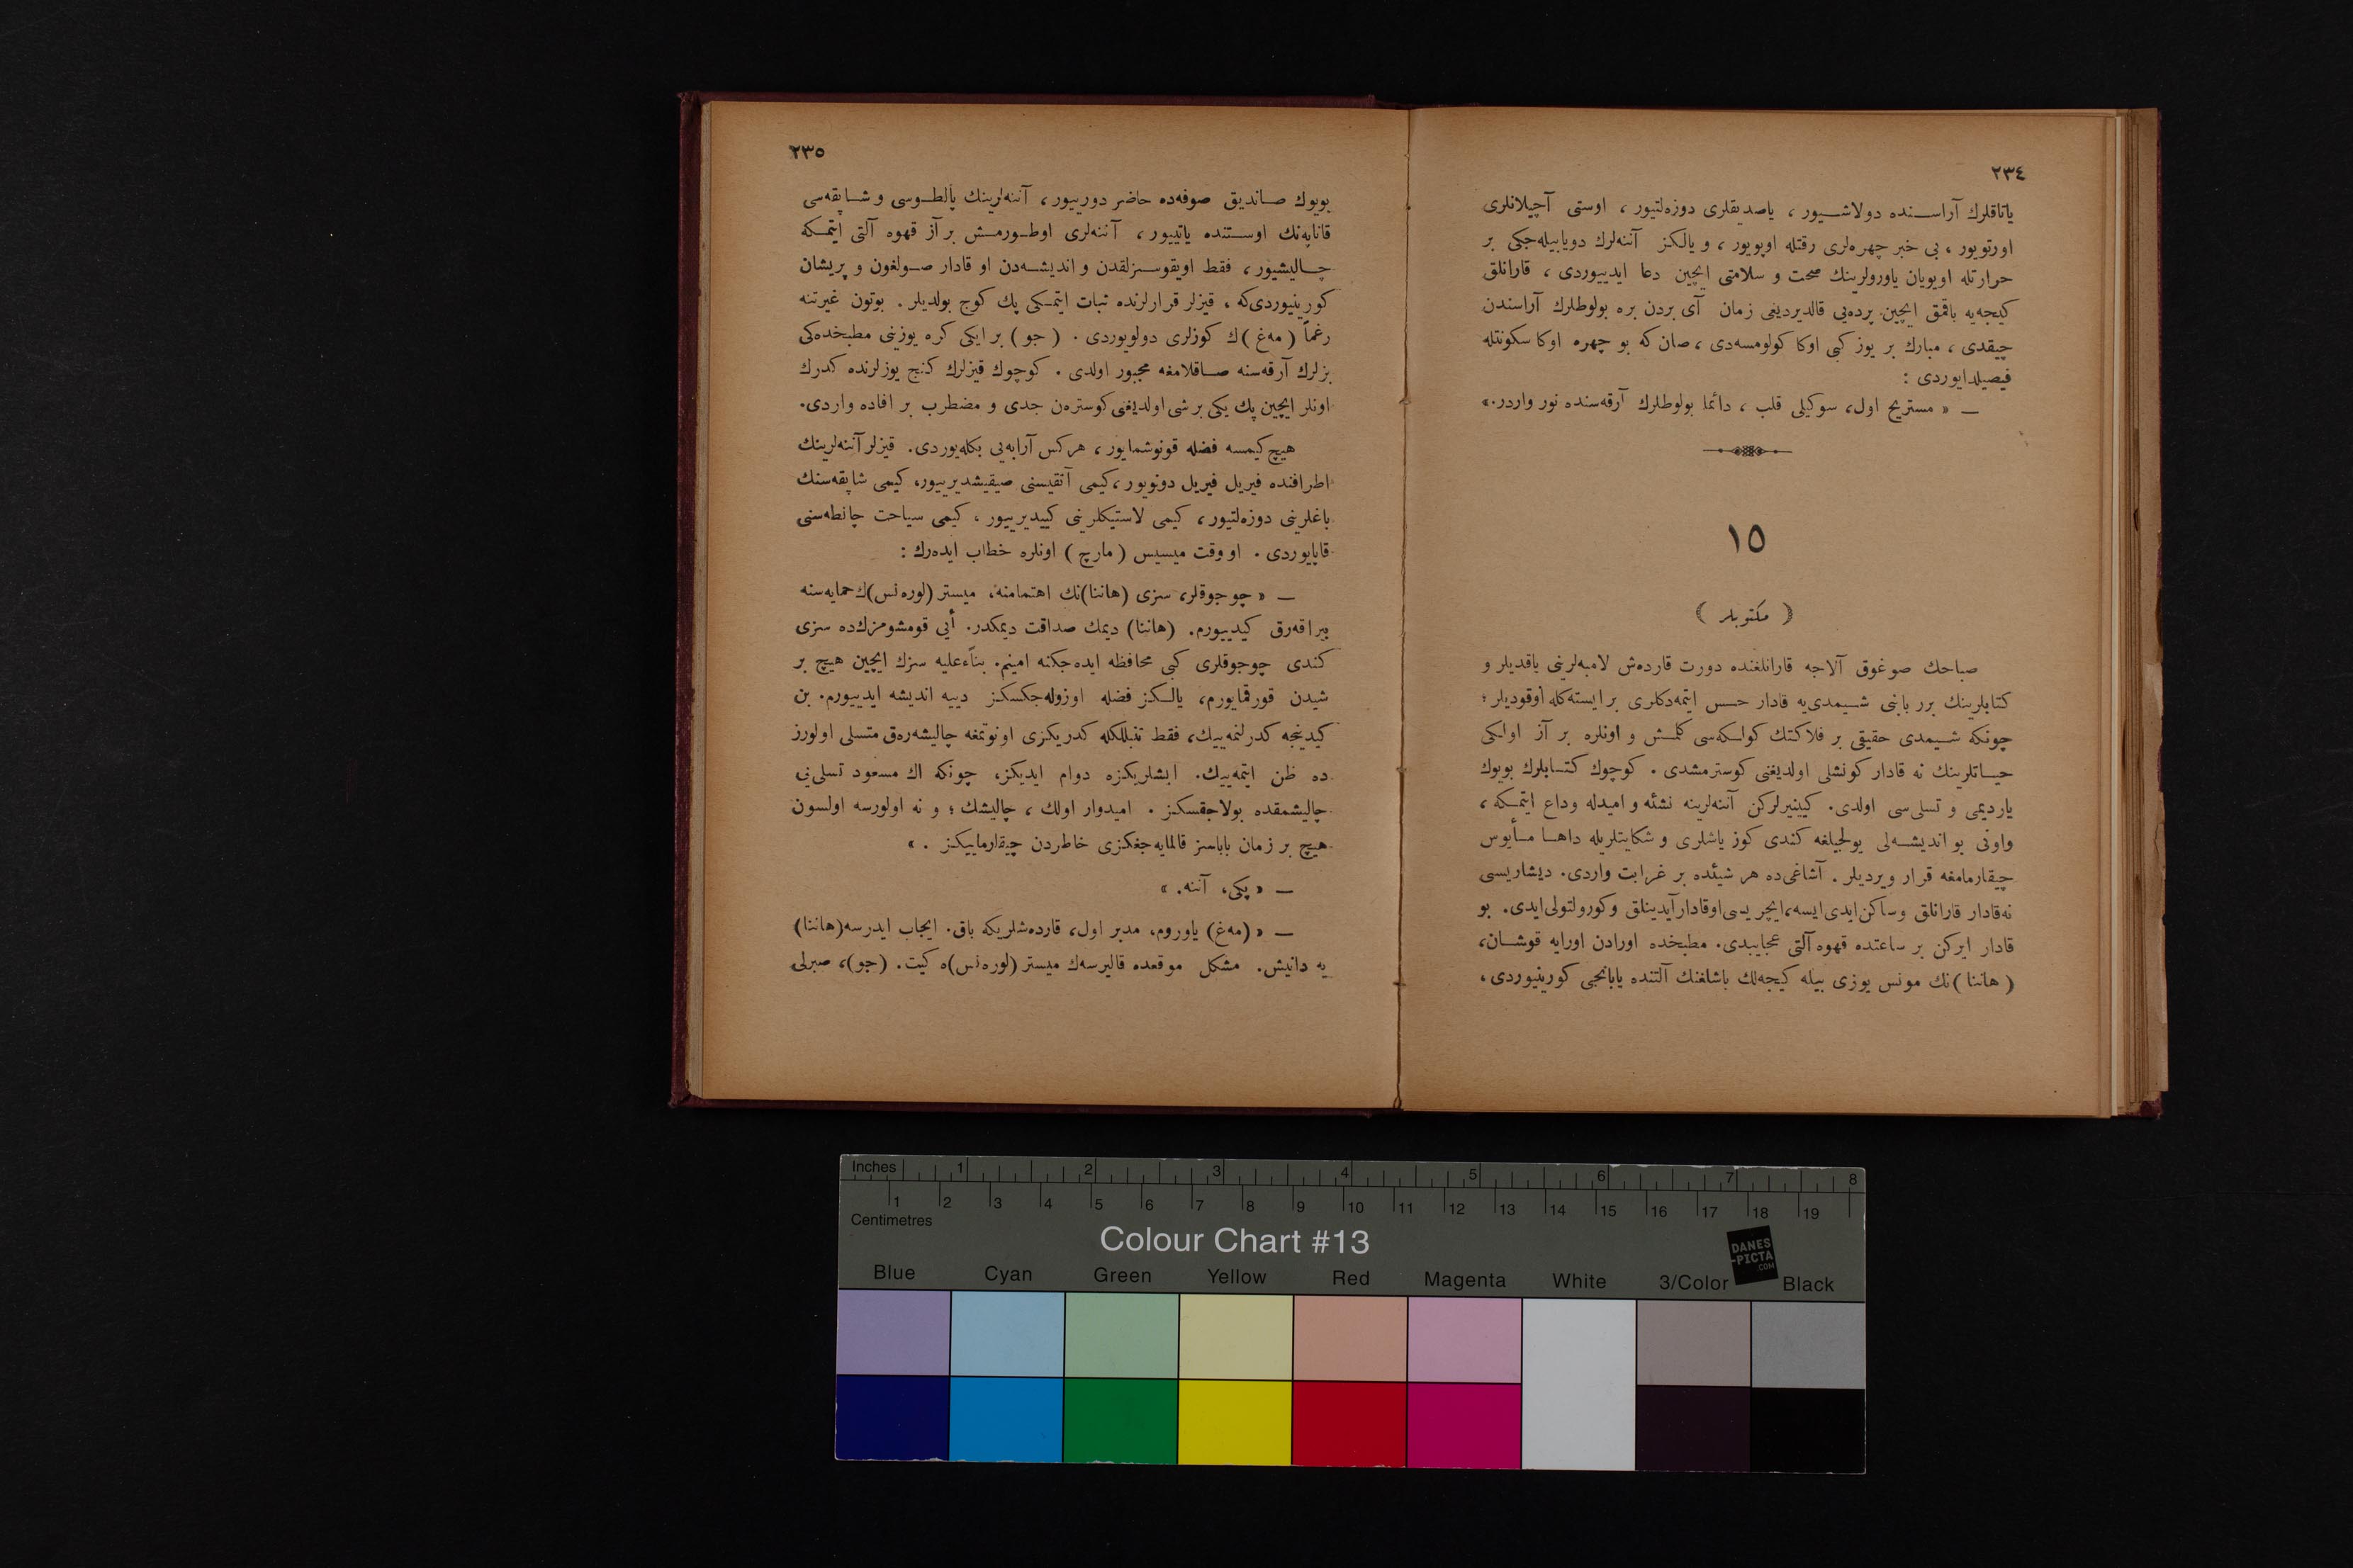 ٢٣٤
ياتاقلرك آراسنده دولاشيور ، ياصديقلرى دوزه‌لتيور ، اوستى آچيلانلرى
اورتويور ، بى خبر چهره‌لرى رقتله اوپويور ، و يالكز آننه‌لرك دويابيله‌جكى بر
حرارتله اويويان ياورولرينك صحت و سلامتى ايچين دعا ايدييوردى ، قارانلق
كيجه‌يه باقمق ايچين پرده‌يى قالديرديغى زمان آى بردن بره بولوطلرك آراسندن
چيقدى ، مبارك بر يوز كبى اوكا كولومسه‌دى ، صان كه بو چهره اوكا سكونتله
فيصيلدايوردى :
— « مستريح اول، سوكيلى قلب ، دائما بولوطلرك آرقه‌سنده نور واردر.»
١٥
( مكتوبلر )
صباحك صوغوق آلاجه قارانلغنده دورت قارده‌ش لامبه‌لرينى ياقديلر و
كتابلرينك برر بابنى شيمدى‌يه قادار حس ايتمه‌دكلرى بر ايسته‌كله اوقوديلر ؛
چونكه شيمدى حقيقى بر فلاكتك كولكه‌سى كلمش و اونلره بر آز اولكى
حياتلرينك نه قادار كونشلى اولديغنى كوسترمشدى . كوچوك كتابلرك بويوك
ياردیمى و تسلى‌سى اولدى. كيينيرلركن آننه‌لرينه نشئه و اميدله وداع ايتمكه ،
واونى بو انديشه‌لى يولجيلغه كندى كوز ياشلرى و شكايتلريله داها مأيوس
چيقارمامغه قرار ويرديلر . آشاغى‌ده هر شيئده بر غرابت واردى. ديشاريسى
نه‌قادار قارانلق وساكن‌ايدى ايسه،ايچريسى‌اوقادار آيدينلق وكورولتولى‌ايدى. بو
قادار ايركن بر ساعتده قهوه آلتى عجايبدى. مطبخده اورادن اورايه قوشان،
( هاننا )نك مونس يوزى بيله كيجه‌لك باشلغنك آلتنده يابانجى كورينيوردى ،
٢٣٥
بويوك صانديق صوفه‌ده حاضر دورييور ، آننه‌لرينك پالطوسى و شاپقه‌سى
قاناپه‌نك اوستنده ياتييور ، آننه‌لرى اوطورمش بر آز قهوه آلتى ايتمكه
چاليشيور ، فقط اويقوسزلقدن و انديشه‌دن او قادار صولغون و پريشان
كورينيوردى‌كه ، قيزلر قرارلرنده ثبات ايتمكى پك كوج بولديلر . بوتون غيرتنه
رغماً ( مه‌غ )ك كوزلرى دولويوردى . ( جو ) بر ايكى كره يوزينى مطبخده‌كى
بزلرك آرقه‌سنه صاقلامغه مجبور اولدى . كوچوك قيزلرك كنج يوزلرنده كدرك
اونلر ايچين پك يكى بر شى اولديغنى كوستره‌ن جدى و مضطرب بر افاده واردى.
هيچ كيمسه فضله قونوشمايور ، هركس آرابه‌يى بكله‌يوردى. قيزلر آننه‌لرينك
اطرافنده فيريل فيريل دونويور ، كيمى آتقيسنى صيقيشديرييور، كيمى شاپقه‌سنك
باغلرينى دوزه‌لتيور ، كيمى لاستيكلرينى كييديرييور ، كيمى سياحت چانطه‌سنى
قاپايوردى . او وقت ميسيس ( مارچ ) اونلره خطاب ايده‌رك :
— « چوجوقلر، سزى (هاننا)نك اهتمامنه، ميستر (لوره‌نس)ك حمايه‌سنه
بيراقه‌رق كيدييورم. (هاننا) ديمك صداقت ديمكدر. أيى قومشومزك‌ده سزى
كندى چوجوقلرى كبى محافظه ايده‌جكنه امينم. بناءًعليه سزك ايچين هيچ بر
شيدن قورقمايورم، يالكز فضله اوزوله‌جكسكز دييه انديشه ايدييورم. بن
كيدينجه كدرلنمه‌ييك، فقط تنبللكله كدريكزى اونوتمغه چاليشه‌رق متسلى اولورز
ده ظن ايتمه‌ييك. ايشلريكزه دوام ايديكز، چونكه اك مسعود تسلى‌يى
چاليشمقده بولاجقسكز . اميدوار اولك ، چاليشك ؛ و نه اولورسه اولسون
هيچ بر زمان باباسز قالمايه‌جغكزى خاطردن چيقارماييكز . »
— « پكى، آننه. »
— « (مه‌غ) ياوروم، مدبر اول، قارده‌شلريكه باق. ايجاب ايدرسه (هاننا)
يه دانيش. مشكل موقعده قاليرسه‌ك ميستر (لوره‌نس)ه كيت. (جو)، صبرلى
Inches 1 2 3 4 5 6 7 8
1 2 3 4 5 6 7 8 9 10 11 12 13 14 15 16 17 18 19
Centimetres
Colour Chart #13
DANES
-PICTA
.COM
Blue Cyan Green Yellow Red Magenta White 3/Color Black